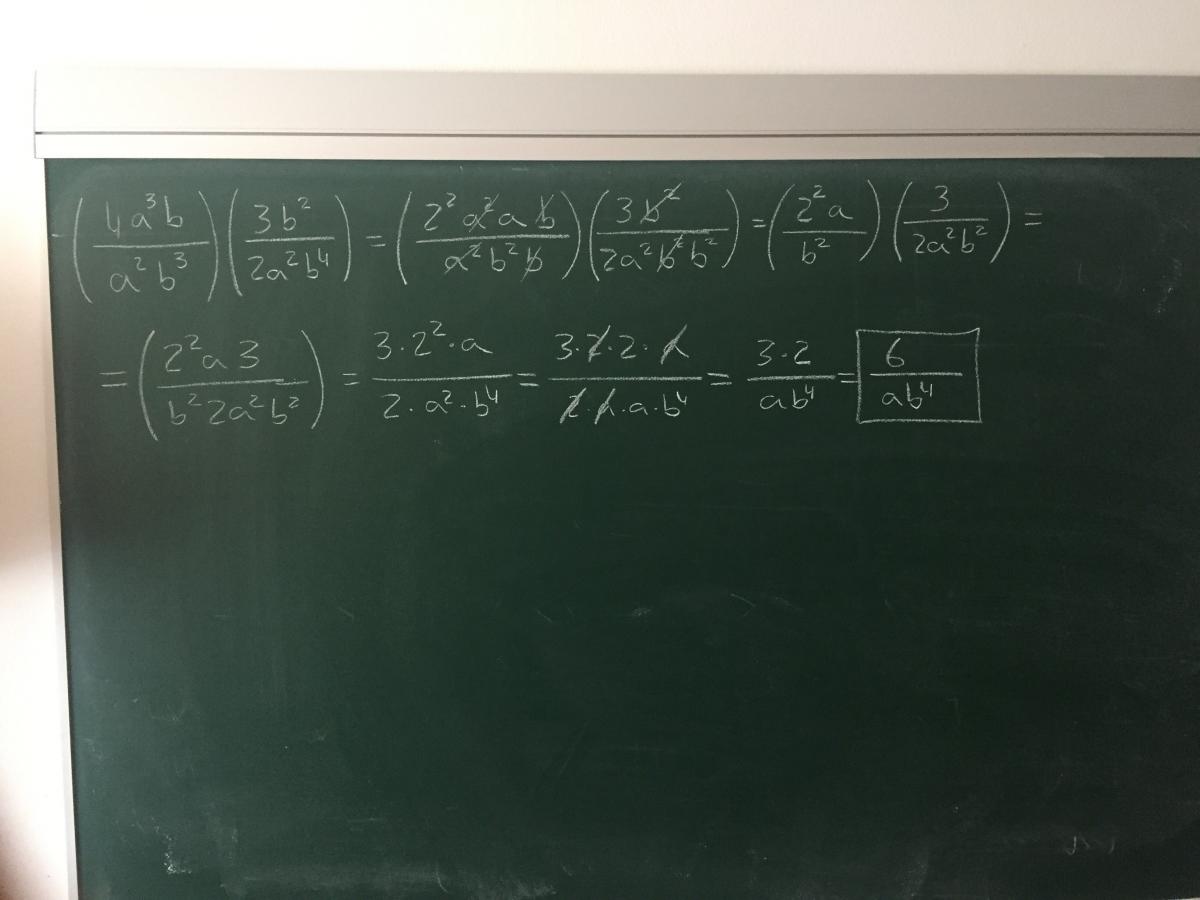 (4a³b / a²b³)(3b² / 2a²b⁴) = (2²a²ab / a²b²b)(3b² / 2a²b²b²) = (2²a / b²)(3 / 2a²b²) =
= (2²a3 / b²2a²b²) = 3·2²·a / 2·a²·b⁴ = 3·2·2·a / 2·a·a·b⁴ = 3·2 / ab⁴ = 6 / ab⁴